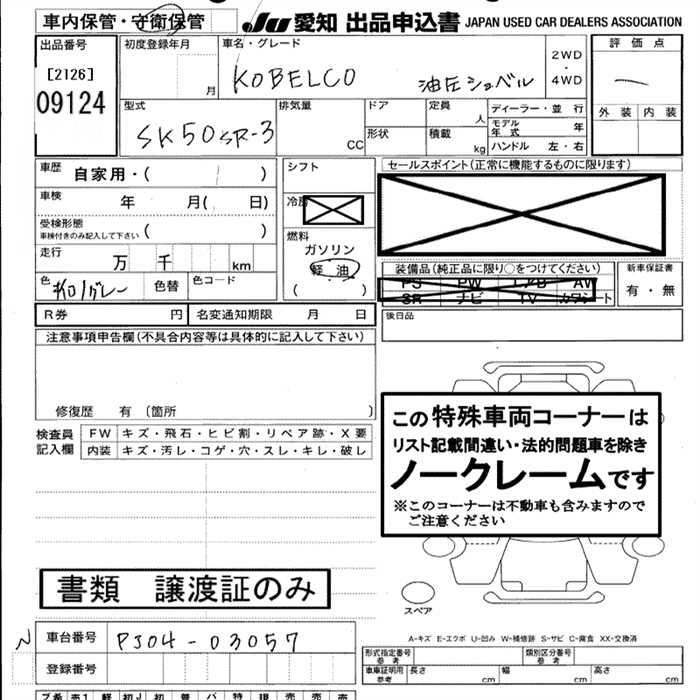 車内保管・守衛保管
JU 愛知 出品申込書 JAPAN USED CAR DEALERS ASSOCIATION
出品番号
[2126]
09124
初度登録年月
月
車名・グレード
KOBELCO 油圧ショベル
2WD
・
4WD
評価点
外装 内装
型式
SK50SR-3
排気量
CC
ドア
形状
定員
人
積載
kg
ディーラー・並行
モデル年式 年
ハンドル 左・右
車歴
自家用・( )
車検
年 月( 日)
受検形態
車検付きのみ記入して下さい ( )
走行
万 千 km
色
色替
色コード
シフト
冷房
燃料
ガソリン
軽油
( )
セールスポイント(正常に機能するものに限ります)
装備品(純正品に限り○をつけてください)
PS PW エアB AW
SR ナビ TV カワシート
新車保証書
有・無
R券 円
名変通知期限 月 日
後日品
注意事項申告欄(不具合内容等は具体的に記入して下さい)
修復歴 有 (箇所 )
検査員記入欄
FW キズ・飛石・ヒビ割・リペア跡・X要
内装 キズ・汚レ・コゲ・穴・スレ・キレ・破レ
この特殊車両コーナーは
リスト記載間違い・法的問題車を除き
ノークレームです
※このコーナーは不動車も含みますので
ご注意ください
スペア
書類 譲渡証のみ
A-キズ E-エクボ U-凹み W-補修跡 S-サビ C-腐食 XX-交換済
N
車台番号
PJ04-03057
登録番号
形式指定番号
参考
類別区分番号
参考
車車証明用
参考
長さ cm
幅 cm
高さ cm